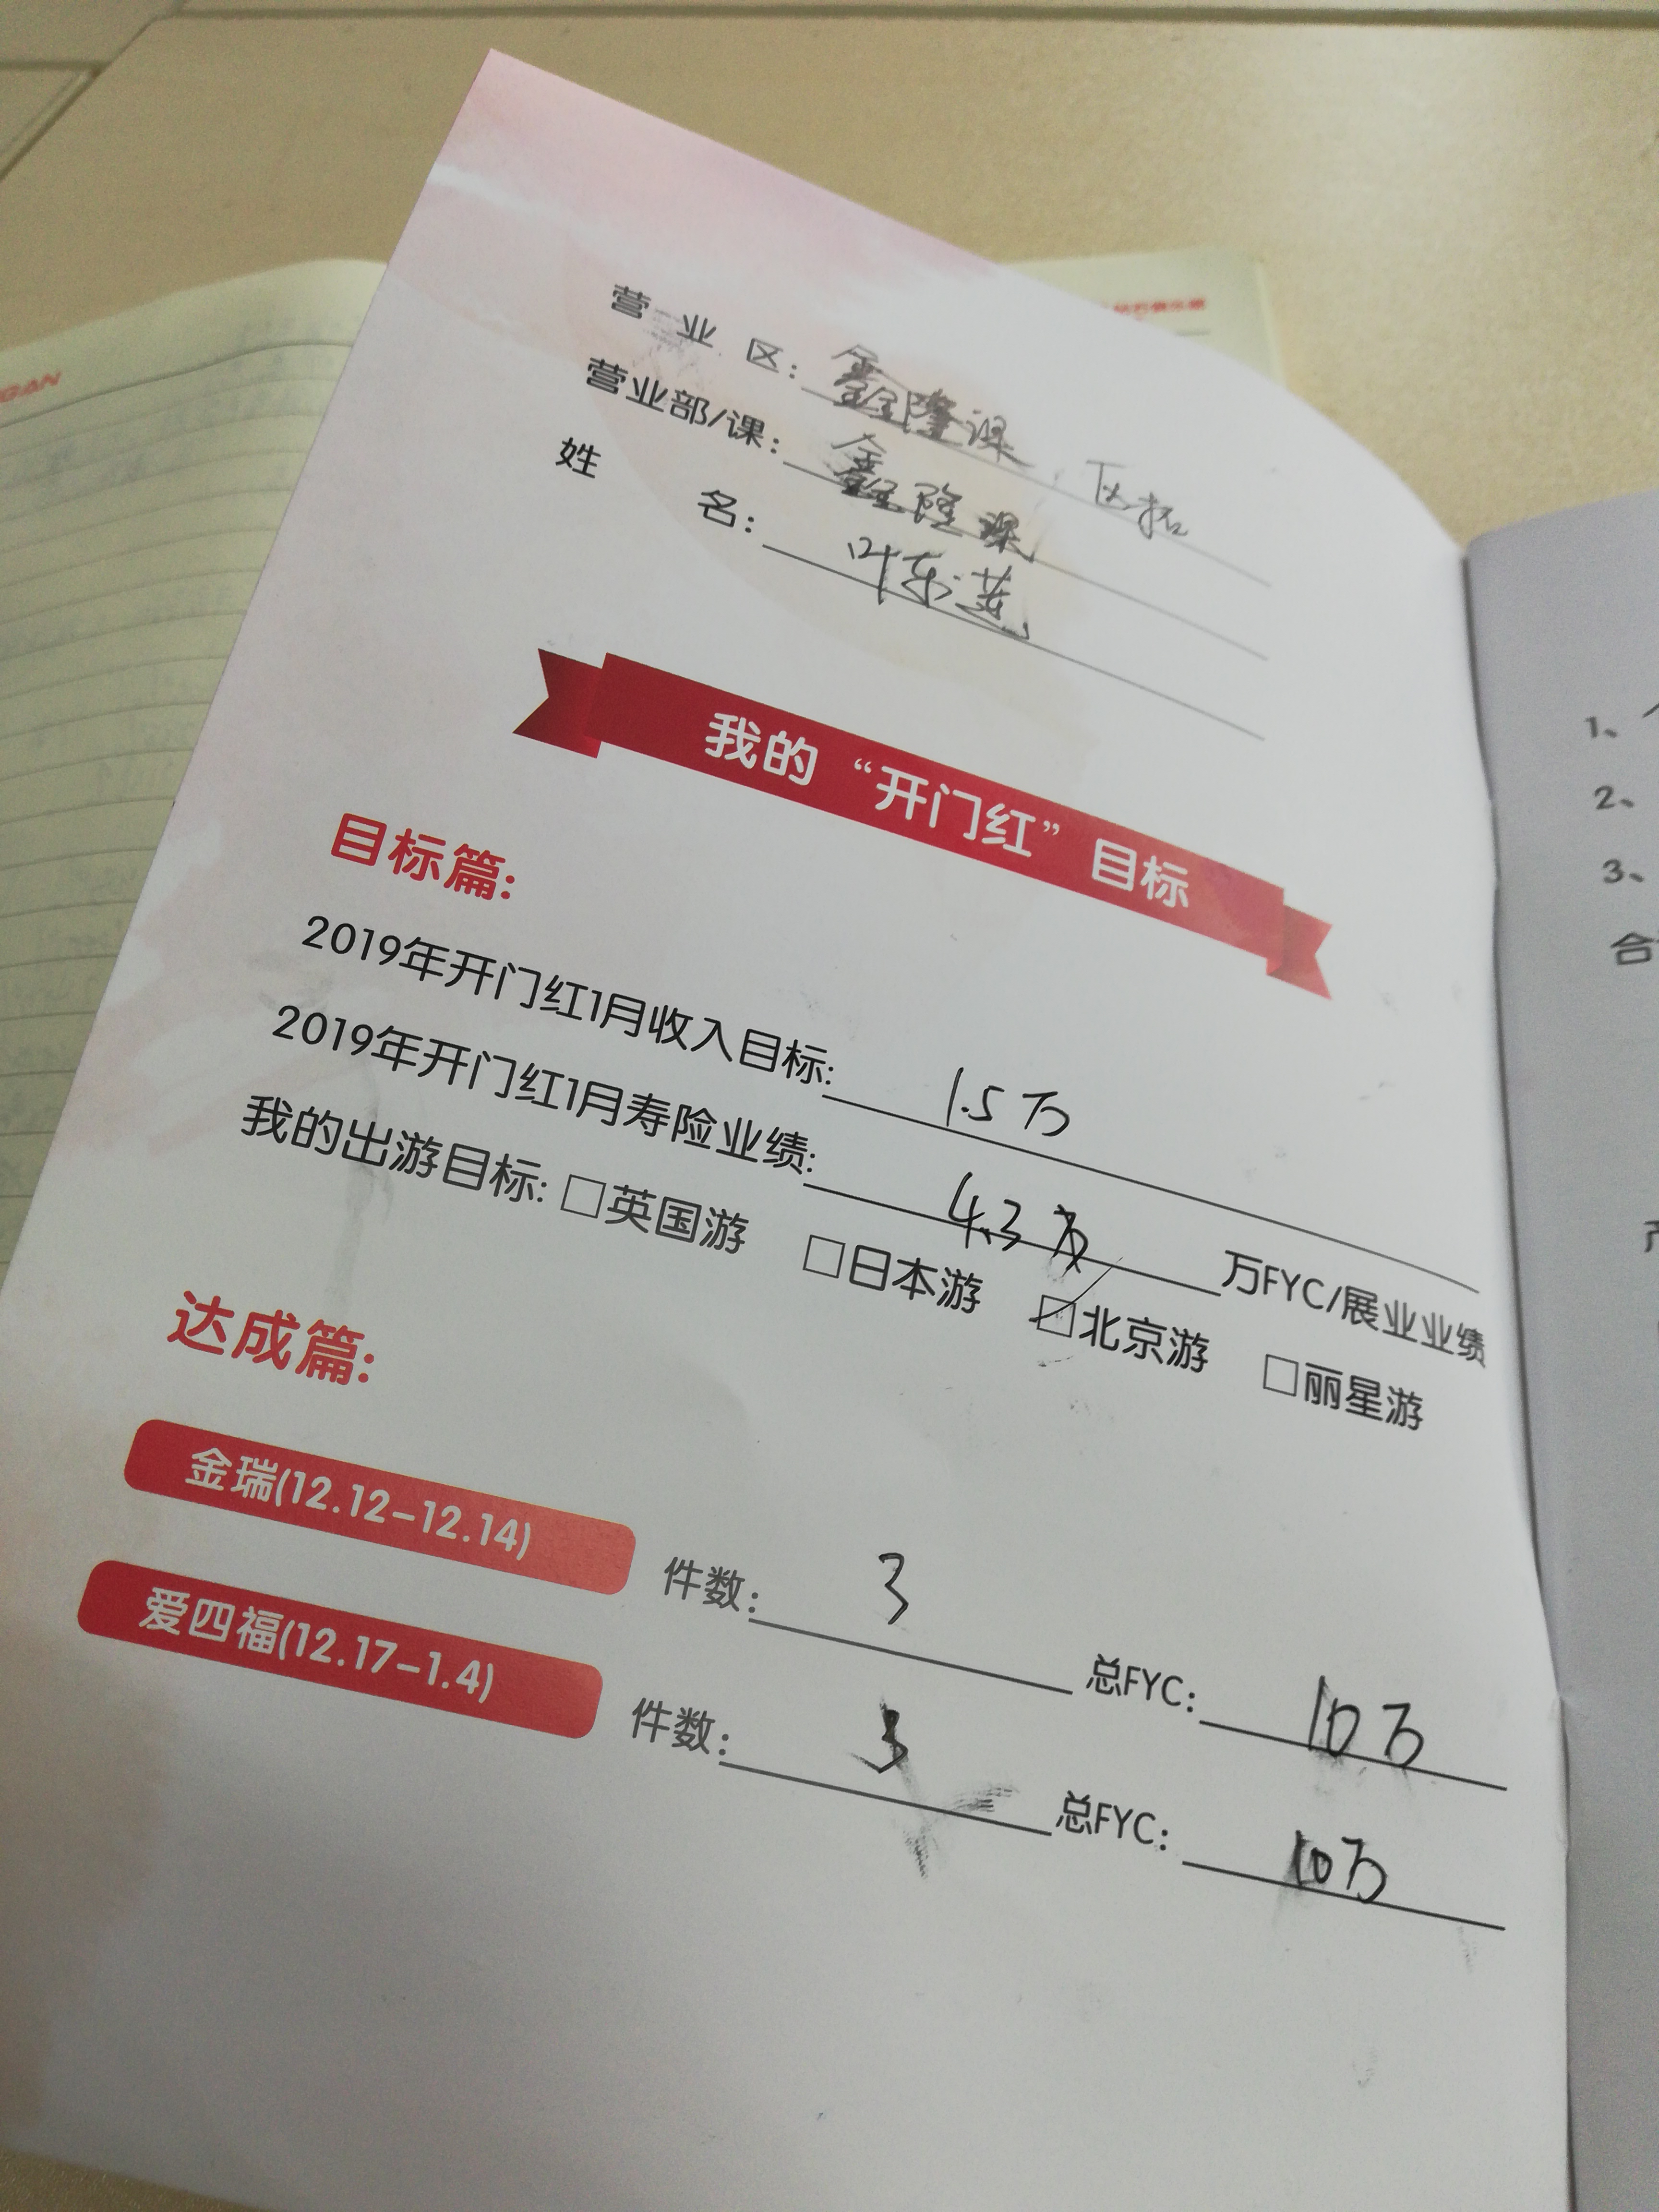 营业区：鑫隆课 区拓
营业部/课：鑫隆课
姓名：叶东燕
我的“开门红”目标
目标篇:
2019年开门红1月收入目标: 1.5万
2019年开门红1月寿险业绩: 4.3 万FYC/展业业绩
我的出游目标: □英国游 □日本游 ☑北京游 □丽星游
达成篇:
金瑞(12.12-12.14) 件数: 3 总FYC: 10万
爱四福(12.17-1.4) 件数: 3 总FYC: 10万
1、
2、
3、
合